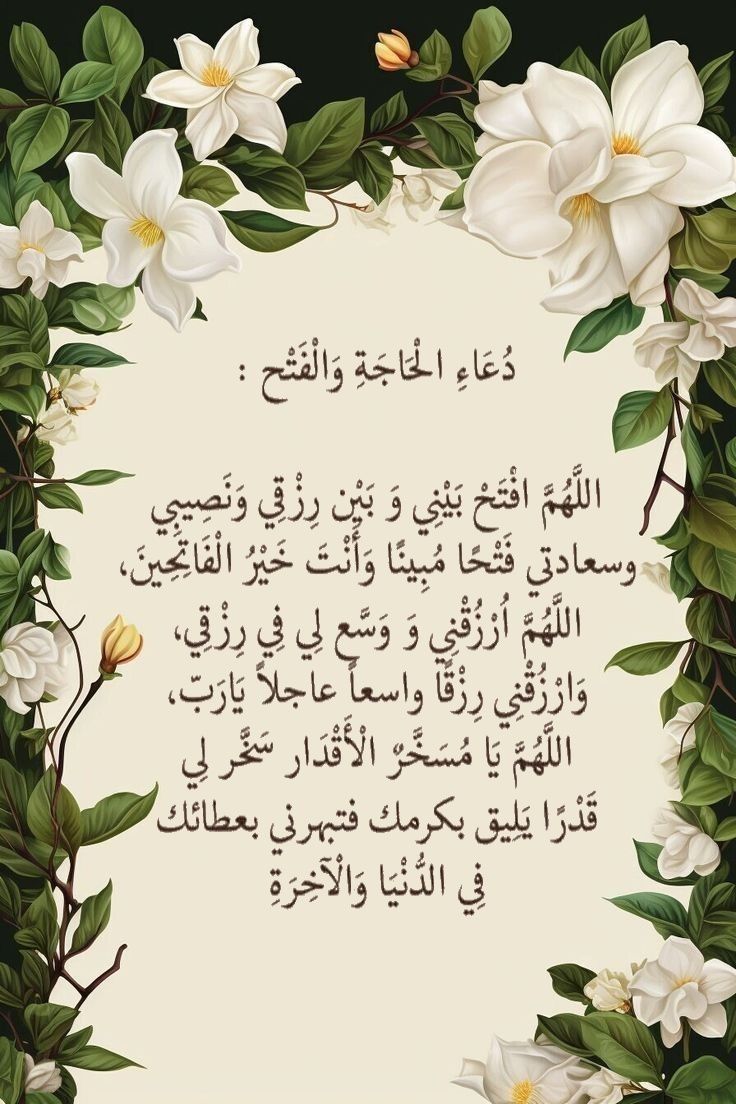 دُعَاءِ الْحَاجَةِ وَالْفَتْح :
اللَّهُمَّ افْتَحْ بَيْنِي وَ بَيْن رِزْقِي وَنَصِيبِي
وسعادتي فَتْحًا مُبِينًا وَأَنْتَ خَيْرُ الْفَاتِحِينَ،
اللَّهُمَّ اُرْزُقْنِي وَ وَسَّع لِي فِي رِزْقِي،
وَارْزُقْنِي رِزْقًا واسعاً عاجلاً يَارَبّ،
اللَّهُمَّ يَا مُسَخَّرٌ الْأَقْدَار سَخَّر لِي
قَدْرًا يَلِيق بكرمك فتبهرني بعطائك
فِي الدُّنْيَا وَالْآخِرَةِ